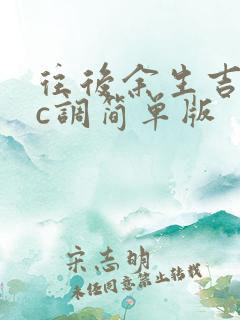 往後余生吉
c調简单版
宋志明
未经同意禁止转载